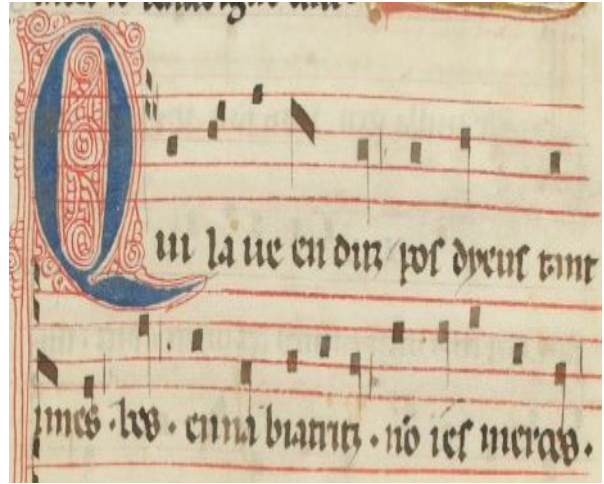 Qui la ue en ditz pos dyeus tant
i mes · bes · en na biatritz · no ies merces ·